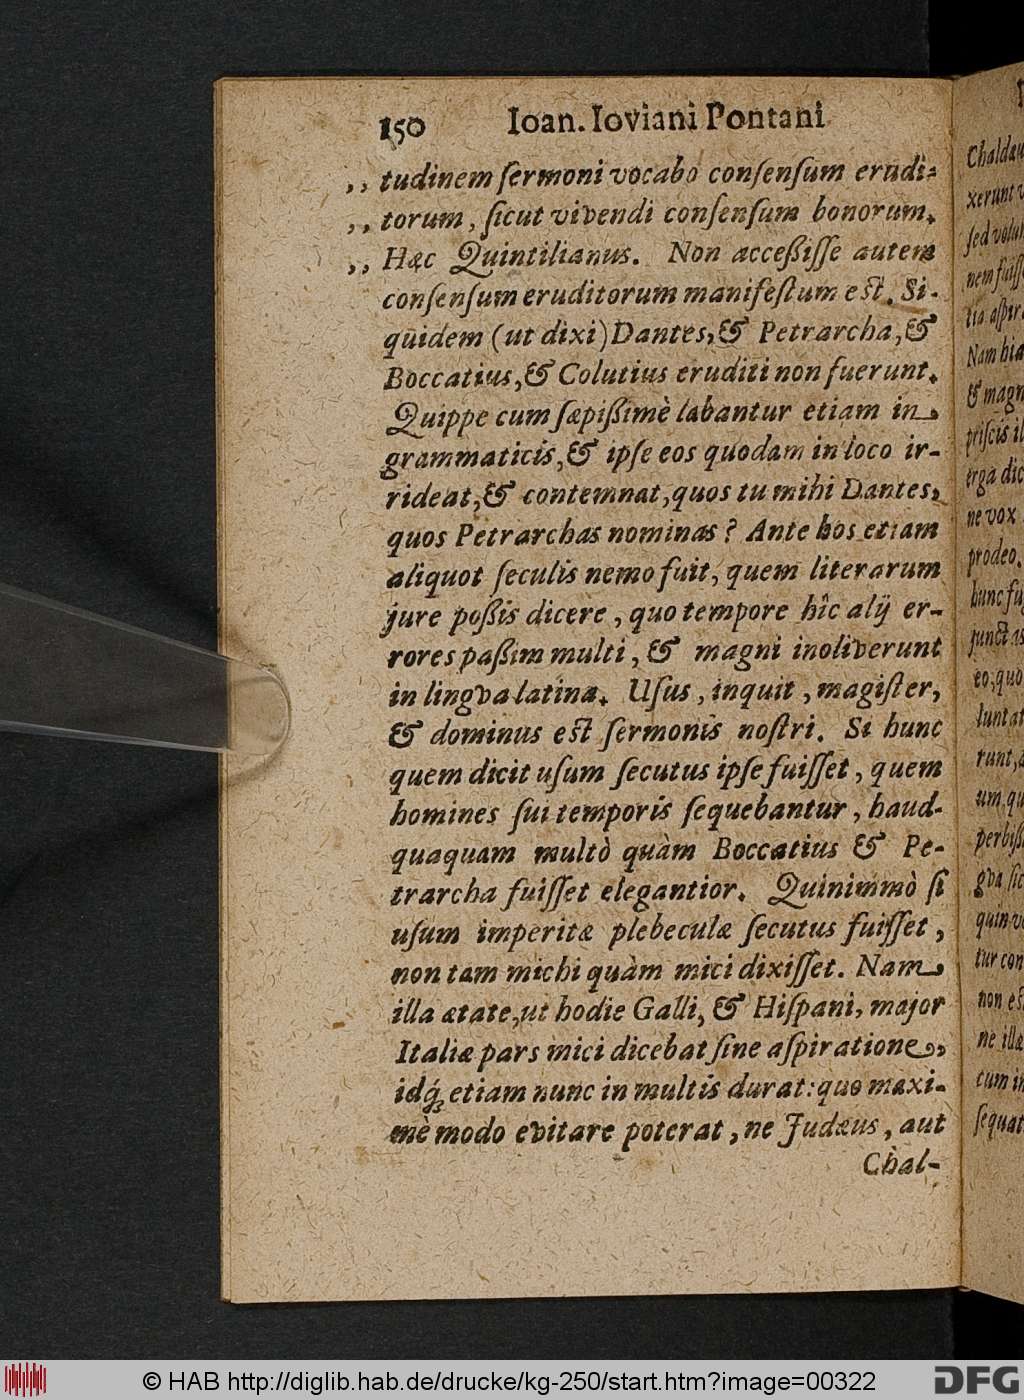 150 Ioan. Ioviani Pontani
,, tudinem ſermoni vocabo conſenſum erudi-
,, torum, ſicut vivendi conſenſum bonorum.
,, Hæc Quintilianus. Non acceßiſſe autem
conſenſum eruditorum manifeſtum eſt. Si-
quidem (ut dixi) Dantes, & Petrarcha, &
Boccatius, & Colutius eruditi non fuerunt.
Quippe cum ſæpißimè labantur etiam in
grammaticis, & ipſe eos quodam in loco ir-
rideat, & contemnat, quos tu mihi Dantes,
quos Petrarchas nominas? Ante hos etiam
aliquot ſeculis nemo fuit, quem literarum
jure poßis dicere, quo tempore hîc alij er-
rores paßim multi, & magni inoliverunt
in lingva latina. Uſus, inquit, magiſter,
& dominus eſt ſermonis noſtri. Si hunc
quem dicit uſum ſecutus ipſe fuiſſet, quem
homines ſui temporis ſequebantur, haud-
quaquam multò quàm Boccatius & Pe-
trarcha fuiſſet elegantior. Quinimmò ſi
uſum imperitæ plebeculæ ſecutus fuiſſet,
non tam michi quàm mici dixiſſet. Nam
illa ætate, ut hodie Galli, & Hiſpani, major
Italiæ pars mici dicebat ſine aſpiratione,
idq́; etiam nunc in multis durat: quo maxi-
mè modo evitare poterat, ne Judæus, aut
Chal-
Chaldæu
xerunt v
ſed volu
nem fuiſſ
tia aſpir
Nam hia
& magn
priſcis il
erga dic
ne vox
prodeo.
hunc fu
junctas
eo, quo
lunt at
runt, a
um, qu
perbiß
gva ſic
quin vo
tur con
non eſt
ne illæ
cum in
ſequat
© HAB http://diglib.hab.de/drucke/kg-250/start.htm?image=00322
DFG